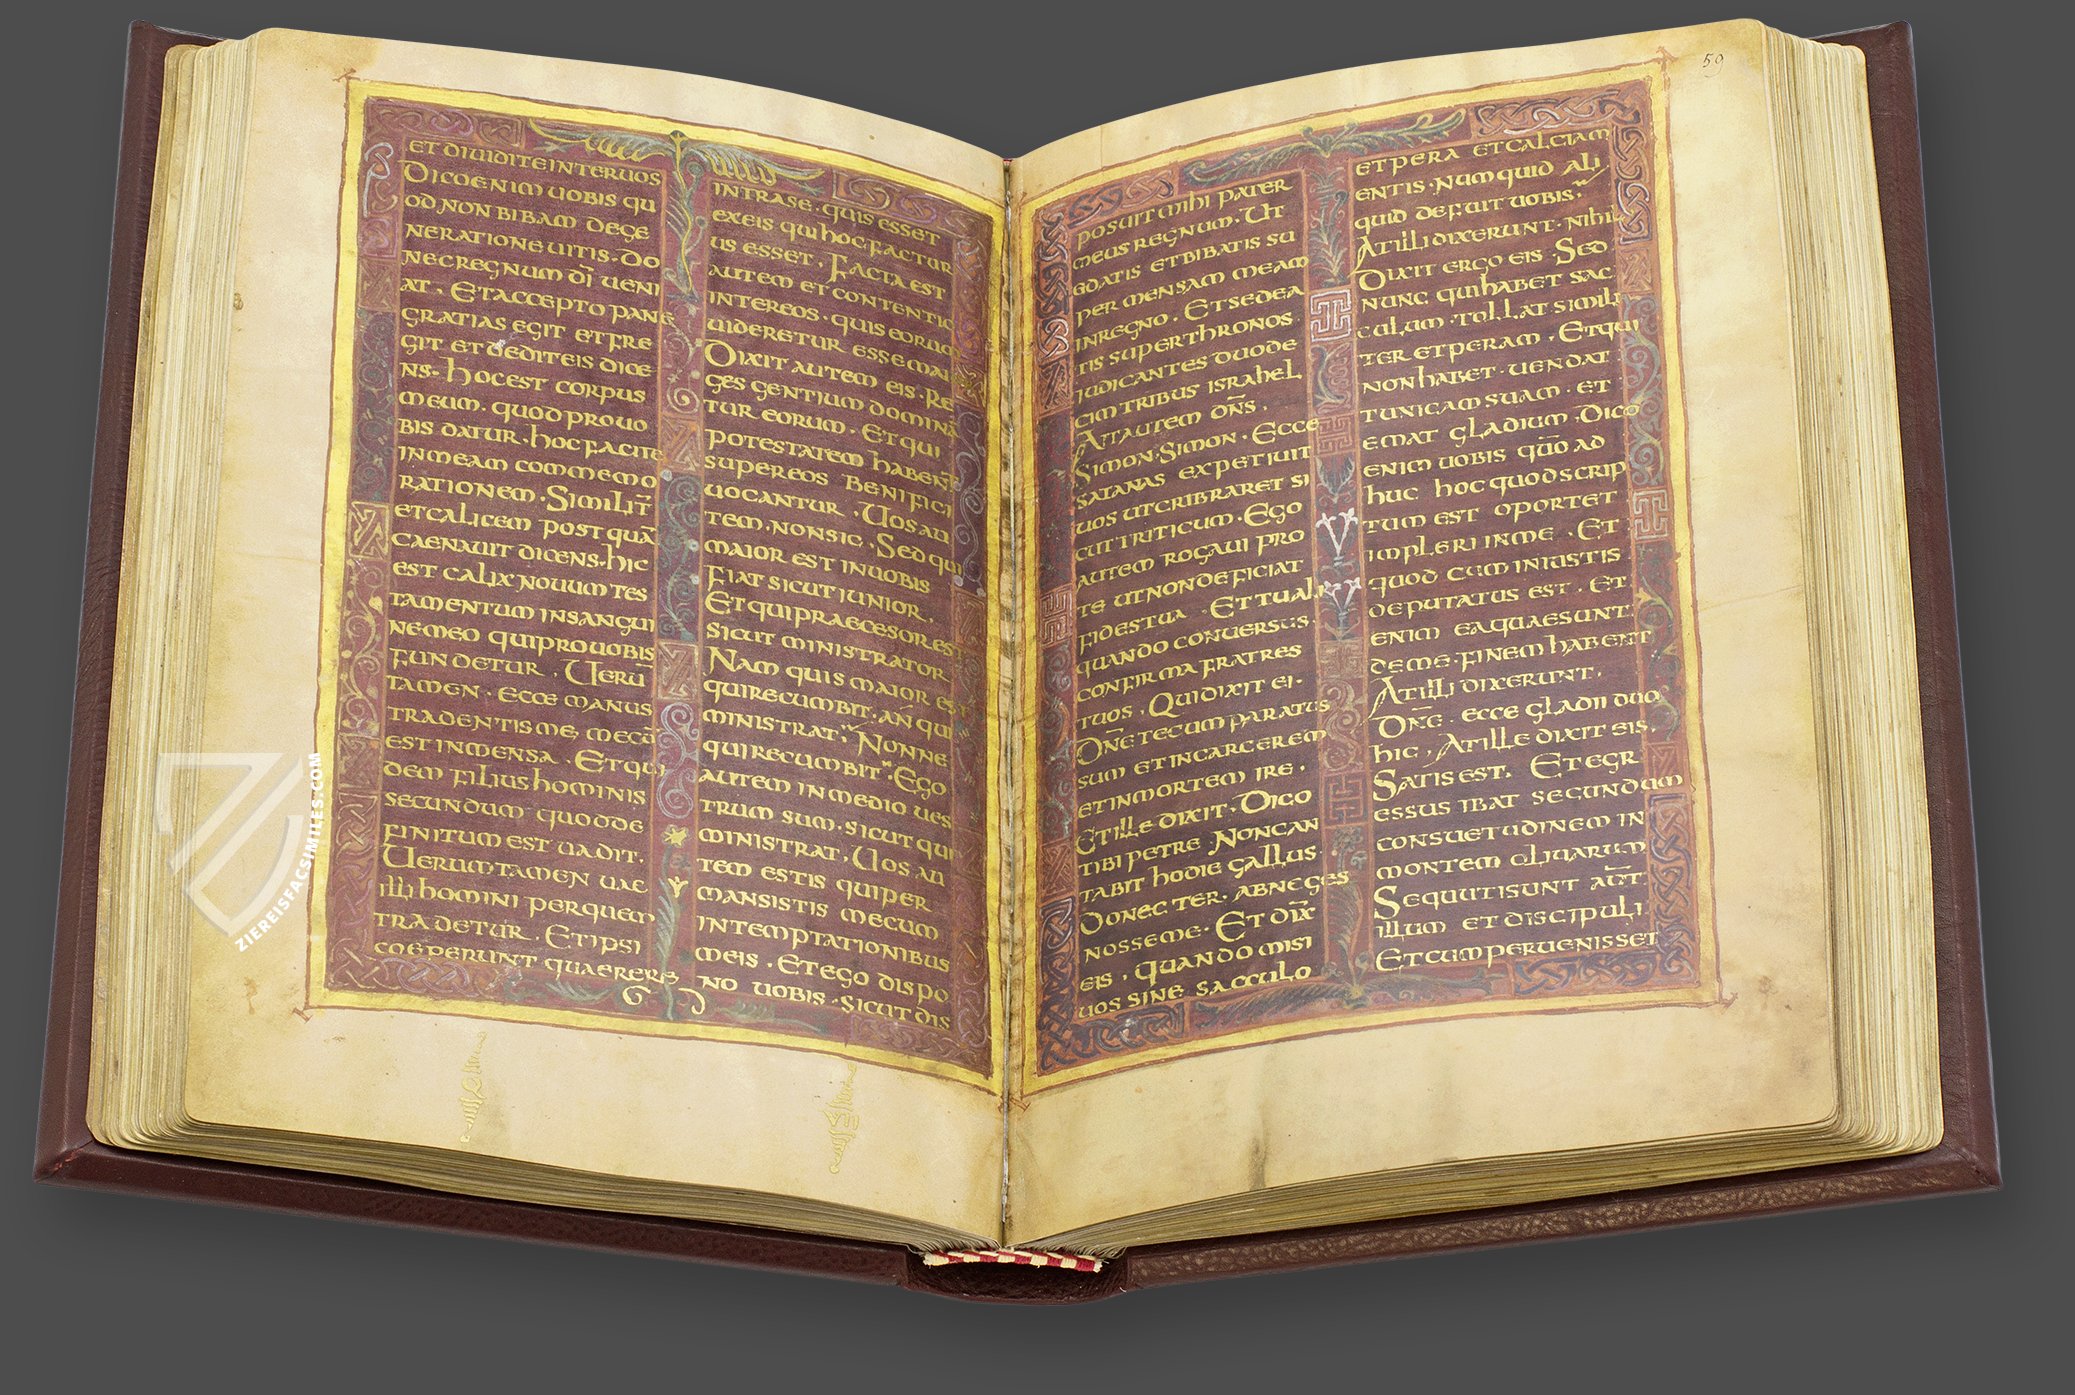 ET DIUIDITE INTER UOS
DICO ENIM UOBIS QU
OD NON BIBAM DE GE
NERATIONE UITIS · DO
NEC REGNUM DĪ UENI
AT · ET ACCEPTO PANE
GRATIAS EGIT ET FRE
GIT ET DEDIT EIS DICE
NS · HOC EST CORPUS
MEUM · QUOD PRO UO
BIS DATUR · HOC FACITE
IN MEAM COMMEMO
RATIONEM · SIMILIT̄
ET CALICEM POST QUĀ
CAENAUIT DICENS · HIC
EST CALIX NOUUM TES
TAMENTUM IN SANGUI
NE MEO QUI PRO UOBIS
FUNDETUR · UERŪ
TAMEN · ECCE MANUS
TRADENTIS ME MECŪ
EST IN MENSA · ET QUI
DEM FILIUS HOMINIS
SECUNDUM QUOD DE
FINITUM EST UADIT ·
UERUMTAMEN UAE
ILLI HOMINI PER QUEM
TRADETUR · ET IPSI
COEPERUNT QUAERERE
INTRA SE · QUIS ESSET
EX EIS QUI HOC FACTUR
US ESSET · FACTA EST
AUTEM ET CONTENTIO
INTER EOS · QUIS EORUM
UIDERETUR ESSE MAI
DIXIT AUTEM EIS · RE
GES GENTIUM DOMINA
TUR EORUM · ET QUI
POTESTATEM HABENT
SUPER EOS BENIFICI
UOCANTUR · UOS AU
TEM · NON SIC · SED QUI
MAIOR EST IN UOBIS
FIAT SICUT IUNIOR ·
ET QUI PRAECESOR EST
SICUT MINISTRATOR
NAM QUIS MAIOR EST
QUI RECUMBIT · AN QUI
MINISTRAT · NONNE
QUI RECUMBIT · EGO
AUTEM IN MEDIO UES
TRUM SUM · SICUT QUI
MINISTRAT · UOS AU
TEM ESTIS QUI PER
MANSISTIS MECUM
IN TEMPTATIONIBUS
MEIS · ET EGO DISPO
NO UOBIS · SICUT DIS
59
POSUIT MIHI PATER
MEUS REGNUM · UT
EDATIS ET BIBATIS SU
PER MENSAM MEAM
IN REGNO · ET SEDEA
TIS SUPER THRONOS
IUDICANTES DUODE
CIM TRIBUS ISRAHEL
AIT AUTEM DN̄S ·
SIMON · SIMON · ECCE
SATANAS EXPETIUIT
UOS UT CRIBRARET SI
CUT TRITICUM · EGO
AUTEM ROGAUI PRO
TE UT NON DEFICIAT
FIDES TUA · ET TU ALI
QUANDO CONUERSUS ·
CONFIRMA FRATRES
TUOS · QUI DIXIT EI ·
DN̄E TECUM PARATUS
SUM ET IN CARCEREM
ET IN MORTEM IRE ·
ET ILLE DIXIT · DICO
TIBI PETRE · NON CAN
TABIT HODIE GALLUS
DONEC TER · ABNEGES
NOSSE ME · ET DIX̄
EIS · QUANDO MISI
UOS SINE SACCULO
ET PERA ET CALCIAM
ENTIS · NUMQUID ALI
QUID DEFUIT UOBIS
AT ILLI DIXERUNT · NIHIL
DIXIT ERGO EIS · SED
NUNC QUI HABET SAC
CULUM · TOLLAT SIMILI
TER ET PERAM · ET QUI
NON HABET · UENDAT
TUNICAM SUAM · ET
EMAT GLADIUM · DICO
ENIM UOBIS QŪO AD
HUC HOC QUOD SCRIP
TUM EST OPORTET
IMPLERI IN ME · ET
QUOD CUM INIUSTIS
DEPUTATUS EST · ET
ENIM EA QUAE SUNT
DE ME · FINEM HABENT
AT ILLI DIXERUNT ·
DN̄E · ECCE GLADII DUO
HIC · AT ILLE DIXIT EIS ·
SATIS EST · ET EGR
ESSUS IBAT SECUNDUM
CONSUETUDINEM IN
MONTEM OLIUARUM
SEQUUTI SUNT AŪT
ILLUM ET DISCIPULI
ET CUM PERUENISSET
ZIEREISFACSIMILES.COM